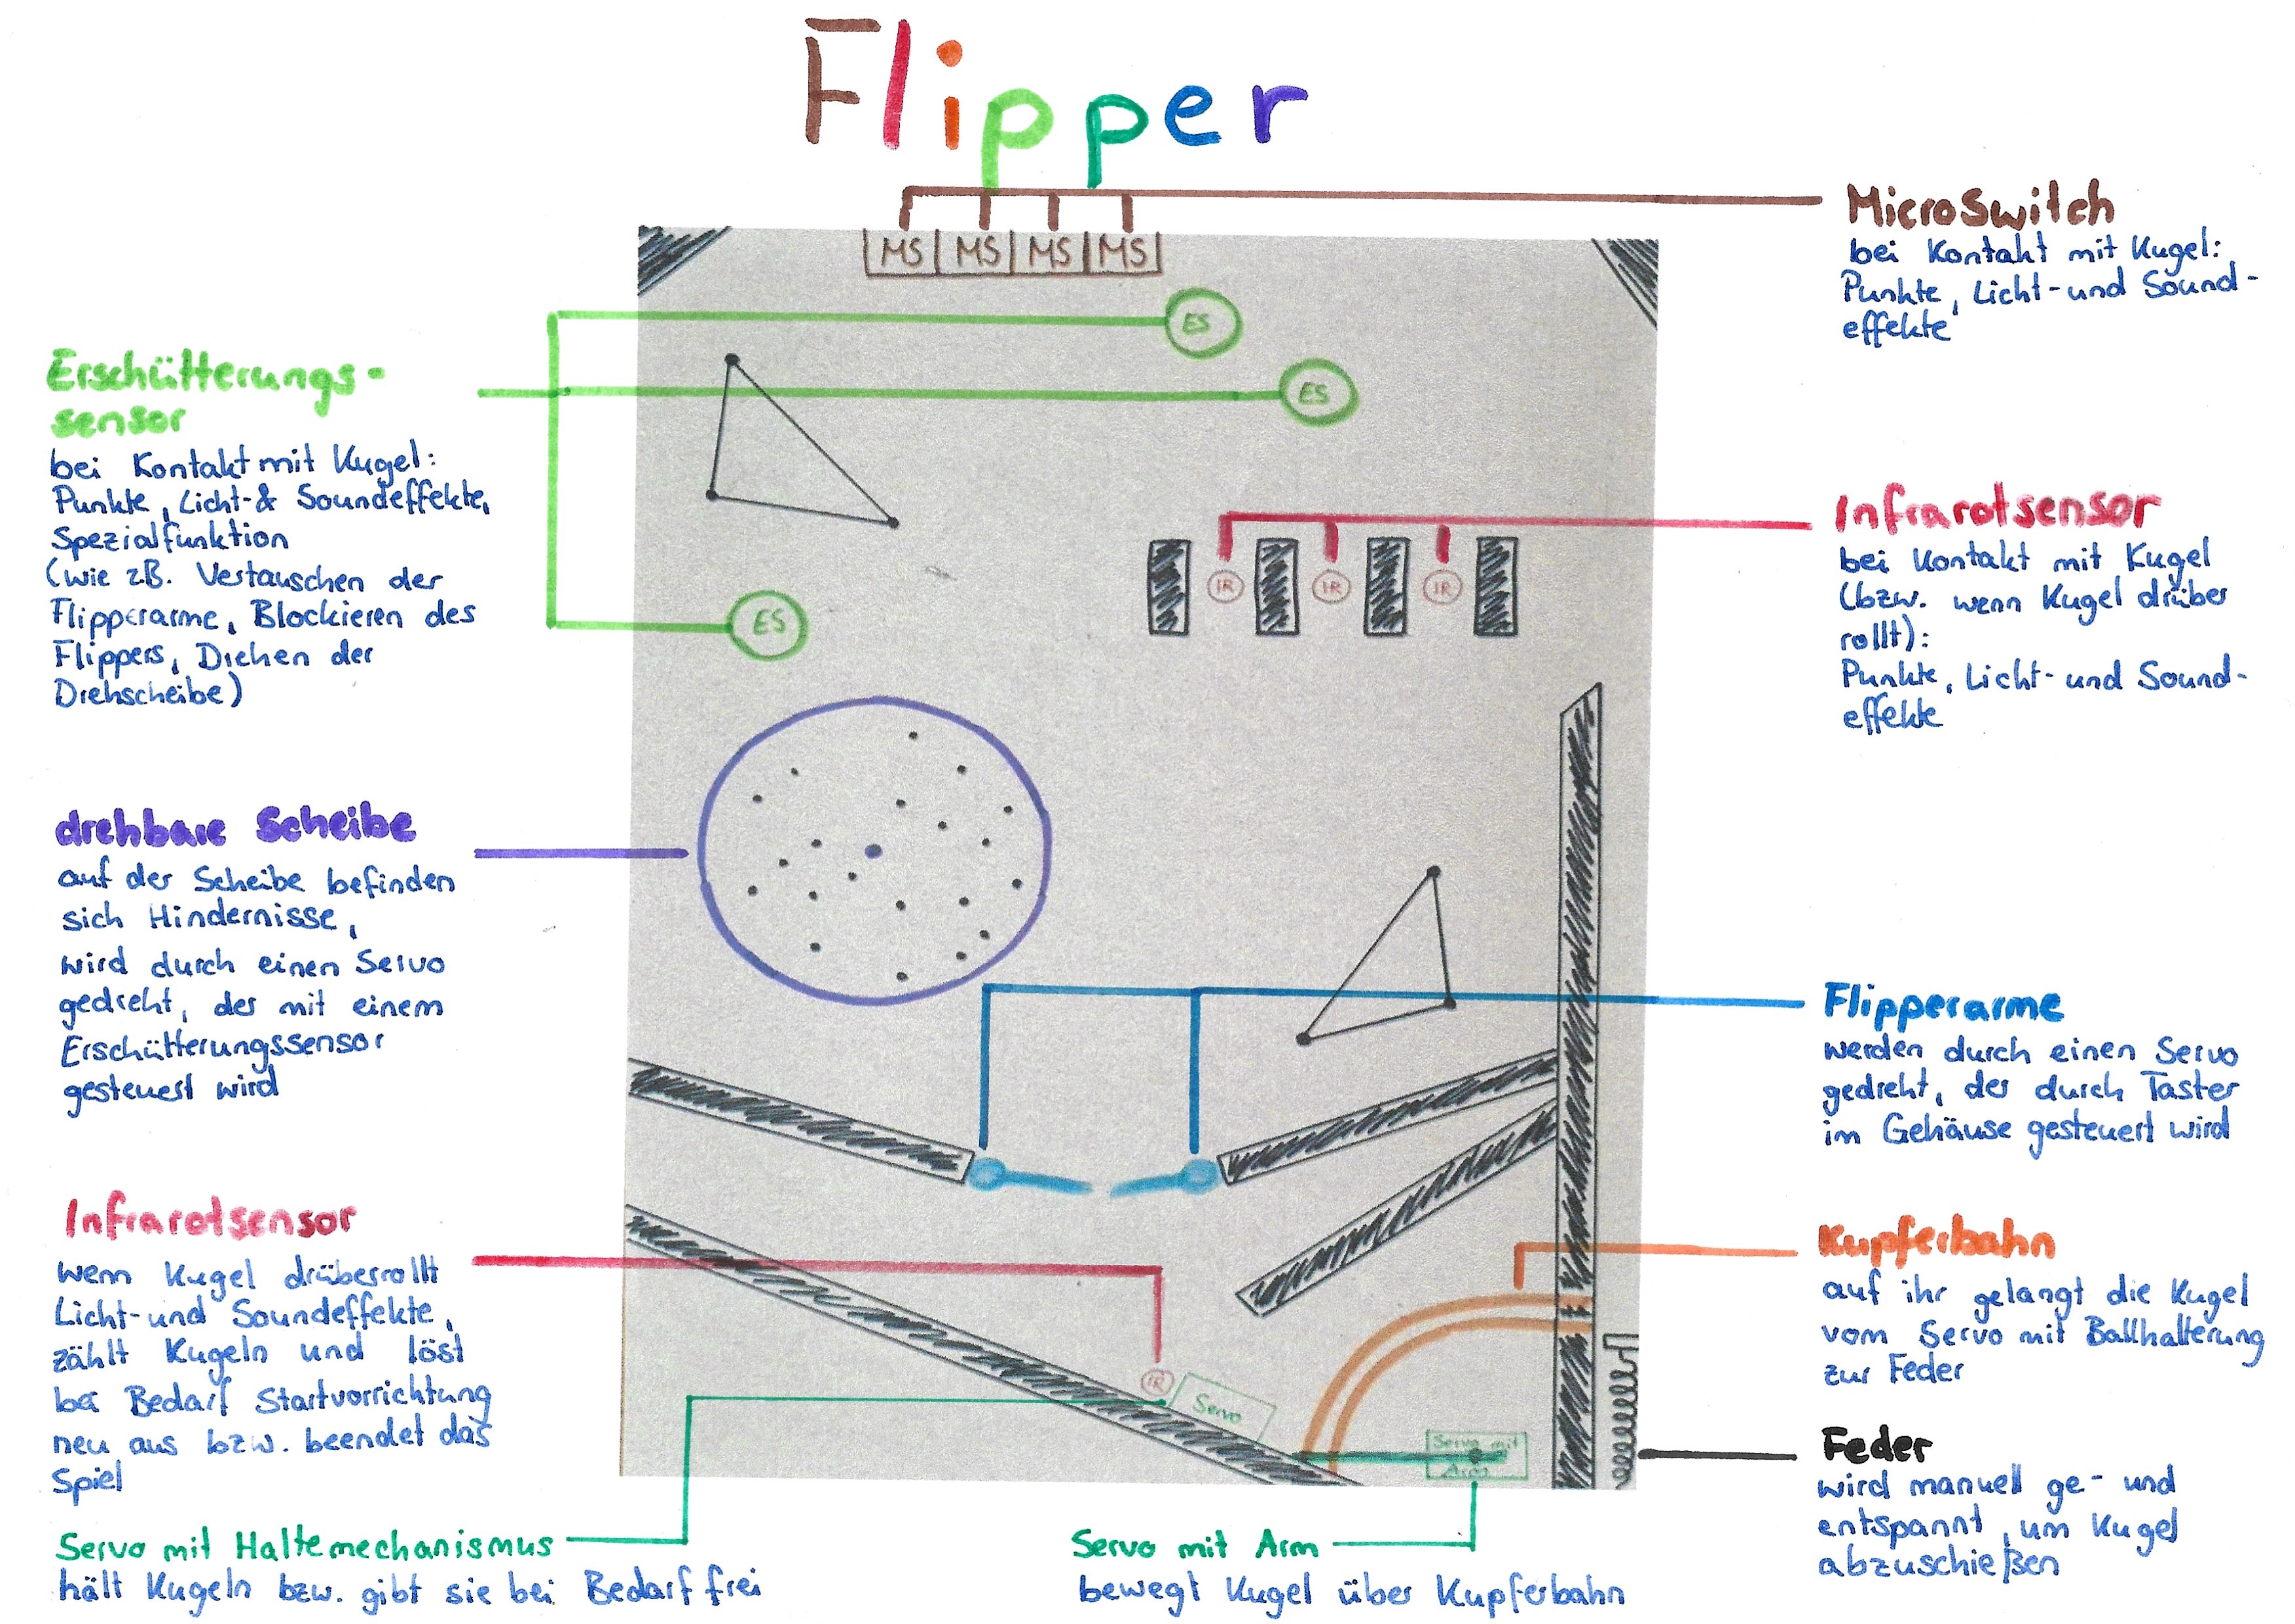 Flipper
MS MS MS MS
MicroSwitch
bei Kontakt mit Kugel:
Punkte, Licht- und Sound-
effekte
Erschütterungs-
sensor
bei Kontakt mit Kugel:
Punkte, Licht- & Soundeffekte,
Spezialfunktion
(wie zB. Vertauschen der
Flipperarme, Blockieren des
Flippers, Drehen der
Drehscheibe)
ES
ES
ES
Infrarotsensor
bei Kontakt mit Kugel
(bzw. wenn Kugel drüber
rollt):
Punkte, Licht- und Sound-
effekte
IR IR IR
drehbare Scheibe
auf der Scheibe befinden
sich Hindernisse,
wird durch einen Servo
gedreht, der mit einem
Erschütterungssensor
gesteuert wird
Flipperarme
werden durch einen Servo
gedreht, der durch Taster
im Gehäuse gesteuert wird
Infrarotsensor
wenn Kugel drüberrollt
Licht- und Soundeffekte,
zählt Kugeln und löst
bei Bedarf Startvorrichtung
neu aus bzw. beendet das
Spiel
Kupferbahn
auf ihr gelangt die Kugel
vom Servo mit Ballhalterung
zur Feder
IR
Servo
Servo mit
Arm
Feder
wird manuell ge- und
entspannt, um Kugel
abzuschießen
Servo mit Haltemechanismus
hält Kugeln bzw. gibt sie bei Bedarf frei
Servo mit Arm
bewegt Kugel über Kupferbahn